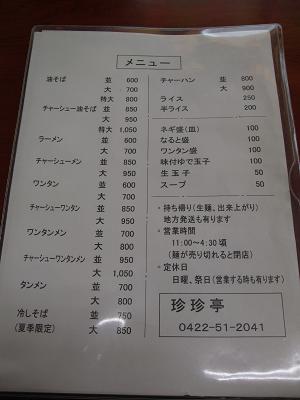 メニュー
油そば 並 600
大 700
特大 800
チャーシュー油そば 並 850
大 950
特大 1,050
ラーメン 並 600
大 700
チャーシューメン 並 850
大 950
ワンタン 並 600
大 700
チャーシューワンタン 並 850
大 950
ワンタンメン 並 700
大 800
チャーシューワンタンメン 並 950
大 1,050
タンメン 並 700
大 800
冷しそば 並 750
(夏季限定) 大 850
チャーハン 並 800
大 900
ライス 250
半ライス 200
ネギ盛(皿) 100
なると盛 100
ワンタン盛 100
味付ゆで玉子 100
生玉子 50
スープ 50
・持ち帰り(生麺、出来上がり)
地方発送も有ります
・営業時間
11:00~4:30 頃
(麺が売り切れると閉店)
・定休日
日曜、祭日(営業する時も有ります)
珍珍亭
0422-51-2041